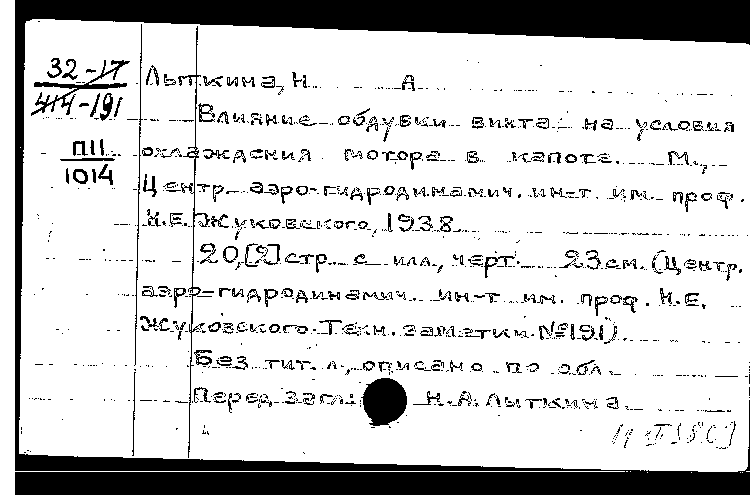 32-17
414-191
П11
1014
Лыткина, Н. А.
Влияние обдувки винта на условия
охлаждения мотора в капоте. М.,
Центр. аэро-гидродинамич. ин-т им. проф.
Н.Е. Жуковского, 1938.
20,[2] стр. с илл., черт. 23 см. (Центр.
аэро-гидродинамич. ин-т им. проф. Н.Е.
Жуковского. Техн. заметки №191)
Без тит. л., описано по обл.
Перед загл.: Н.А. Лыткина.